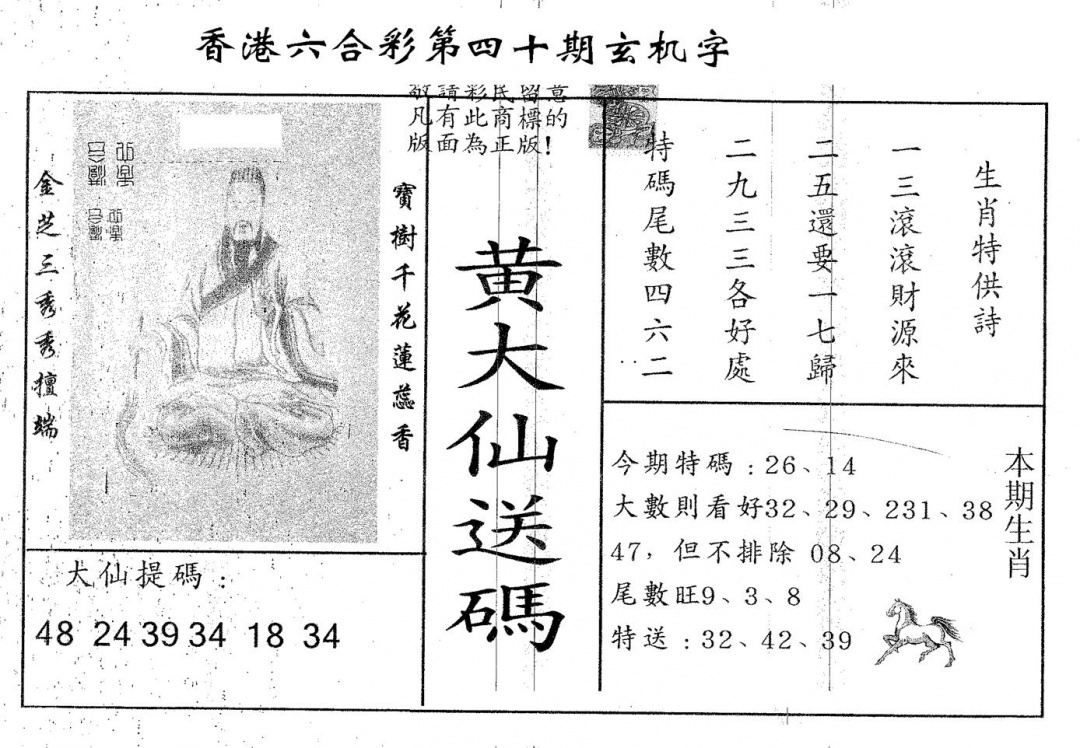 香港六合彩第四十期玄机字
敬請彩民留意
凡有此商標的
版面為正版!
金芝三秀秀擅端
寶樹千花蓮蕊香
黄大仙送碼
生肖特供詩
一三滾滾財源來
二五還要一七歸
二九三三各好處
特碼尾數四六二
犬仙提碼:
48 24 39 34 18 34
今期特碼:26、14
大數則看好32、29、231、38
47，但不排除 08、24
尾數旺9、3、8
特送:32、42、39
本期生肖